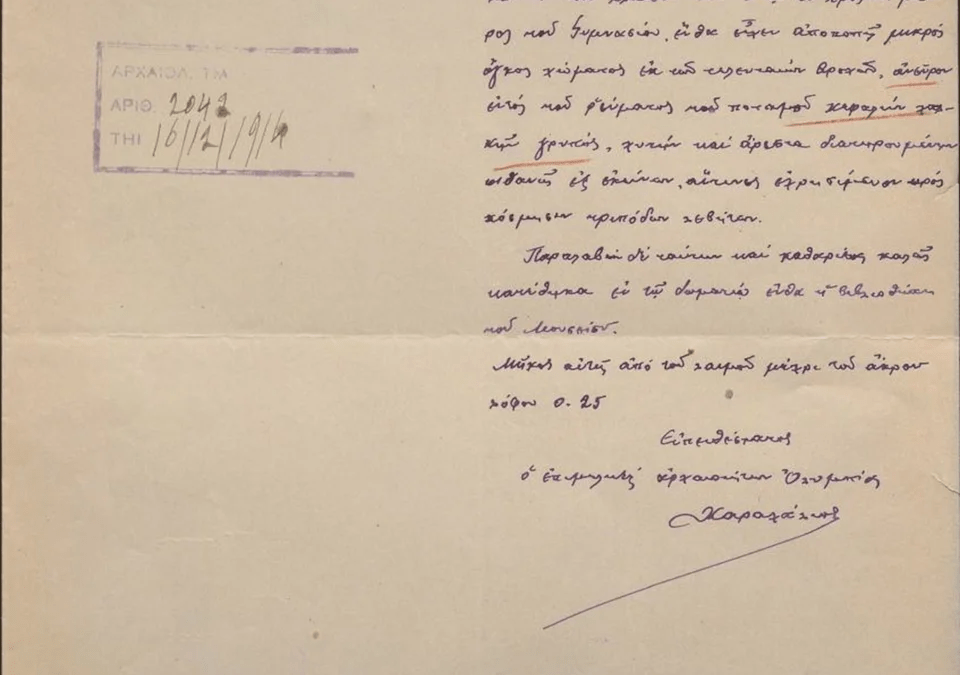 ΑΡΧΑΙΟΛ. ΤΜ
ΑΡΙΘ. 2042
ΤΗΙ 16/12/1914
ρος τοῦ Γυμνασίου, ἔνθα εἶχεν ἀποκοπῇ μικρὸς
ὄγκος χώματος ἐκ τῶν τελευταίων βροχῶν, ἀνεῦρον
ἐντὸς τοῦ ῥεύματος τοῦ ποταμοῦ κεφαλὴν χαλ-
κῆν γρυπός, χυτὴν καὶ ἄριστα διατηρουμένην
πιθανῶς ἐξ ἐκείνων, αἵτινες ἐχρησίμευον πρὸς
κόσμησιν τριπόδων λεβήτων.
Παραλαβὼν δὲ ταύτην καὶ καθαρίσας καλῶς
κατέθηκα ἐν τῷ δωματίῳ ἔνθα ἡ βιβλιοθήκη
τοῦ Μουσείου.
Μῆκος αὐτῆς ἀπὸ τοῦ λαιμοῦ μέχρι τοῦ ἄκρου
λόφου 0.25
Εὐπειθέστατος
ὁ ἐπιμελητὴς ἀρχαιοτήτων Ὀλυμπίας